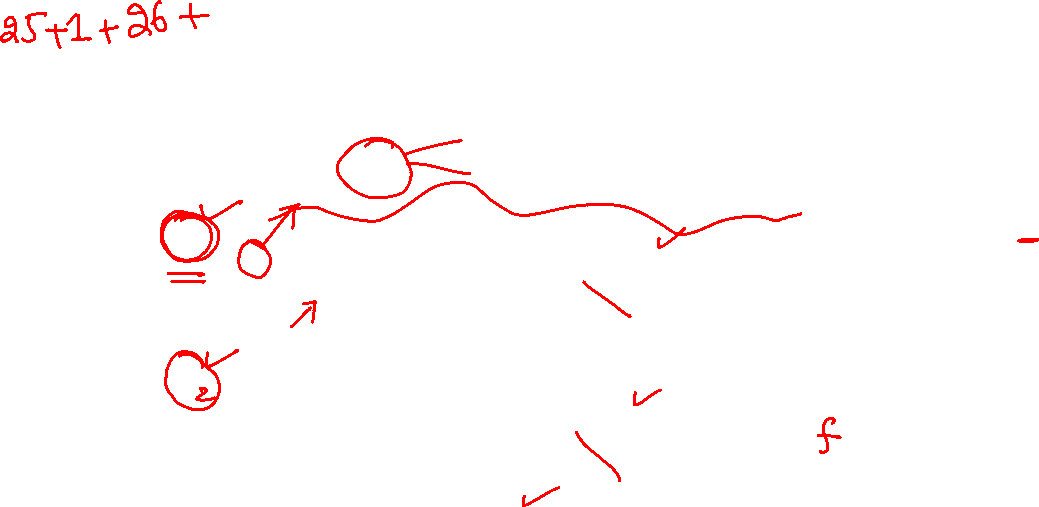 25+1+26+
2
f